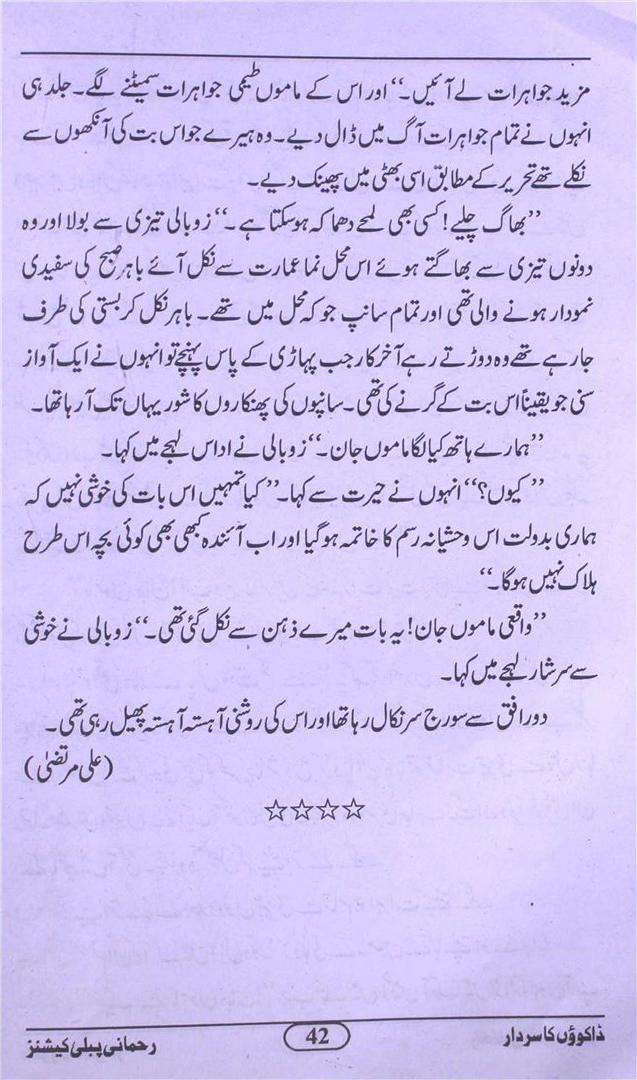 مزید جواہرات لے آئیں۔‘‘ اور اس کے ماموں طیمی جواہرات سمیٹنے لگے۔ جلد ہی
انہوں نے تمام جواہرات آگ میں ڈال دیے۔ وہ ہیرے جو اس بت کی آنکھوں سے
نکلے تھے تحریر کے مطابق اسی بھٹی میں پھینک دیے۔
’’بھاگ چلیے! کسی بھی لمحے دھماکہ ہو سکتا ہے۔‘‘ زوبالی تیزی سے بولا اور وہ
دونوں تیزی سے بھاگتے ہوئے اس محل نما عمارت سے نکل آئے باہر صبح کی سفیدی
نمودار ہونے والی تھی اور تمام سانپ جو کہ محل میں تھے۔ باہر نکل کر بستی کی طرف
جا رہے تھے وہ دوڑتے رہے آخر کار جب پہاڑی کے پاس پہنچے تو انہوں نے ایک آواز
سنی جو یقیناً اس بت کے گرنے کی تھی۔ سانپوں کی پھنکاروں کا شور یہاں تک آ رہا تھا۔
’’ہمارے ہاتھ کیا لگا ماموں جان۔‘‘ زوبالی نے اداس لہجے میں کہا۔
’’کیوں؟‘‘ انہوں نے حیرت سے کہا۔ ’’کیا تمہیں اس بات کی خوشی نہیں کہ
ہماری بدولت اس وحشیانہ رسم کا خاتمہ ہو گیا اور اب آئندہ کبھی بھی کوئی بچہ اس طرح
ہلاک نہیں ہوگا۔‘‘
’’واقعی ماموں جان! یہ بات میرے ذہن سے نکل گئی تھی۔‘‘ زوبالی نے خوشی
سے سرشار لہجے میں کہا۔
دور افق سے سورج سر نکال رہا تھا اور اس کی روشنی آہستہ آہستہ پھیل رہی تھی۔
(علی مرتضیٰ)
☆☆☆☆
ڈاکوؤں کا سردار 42 رحمانی پبلی کیشنز